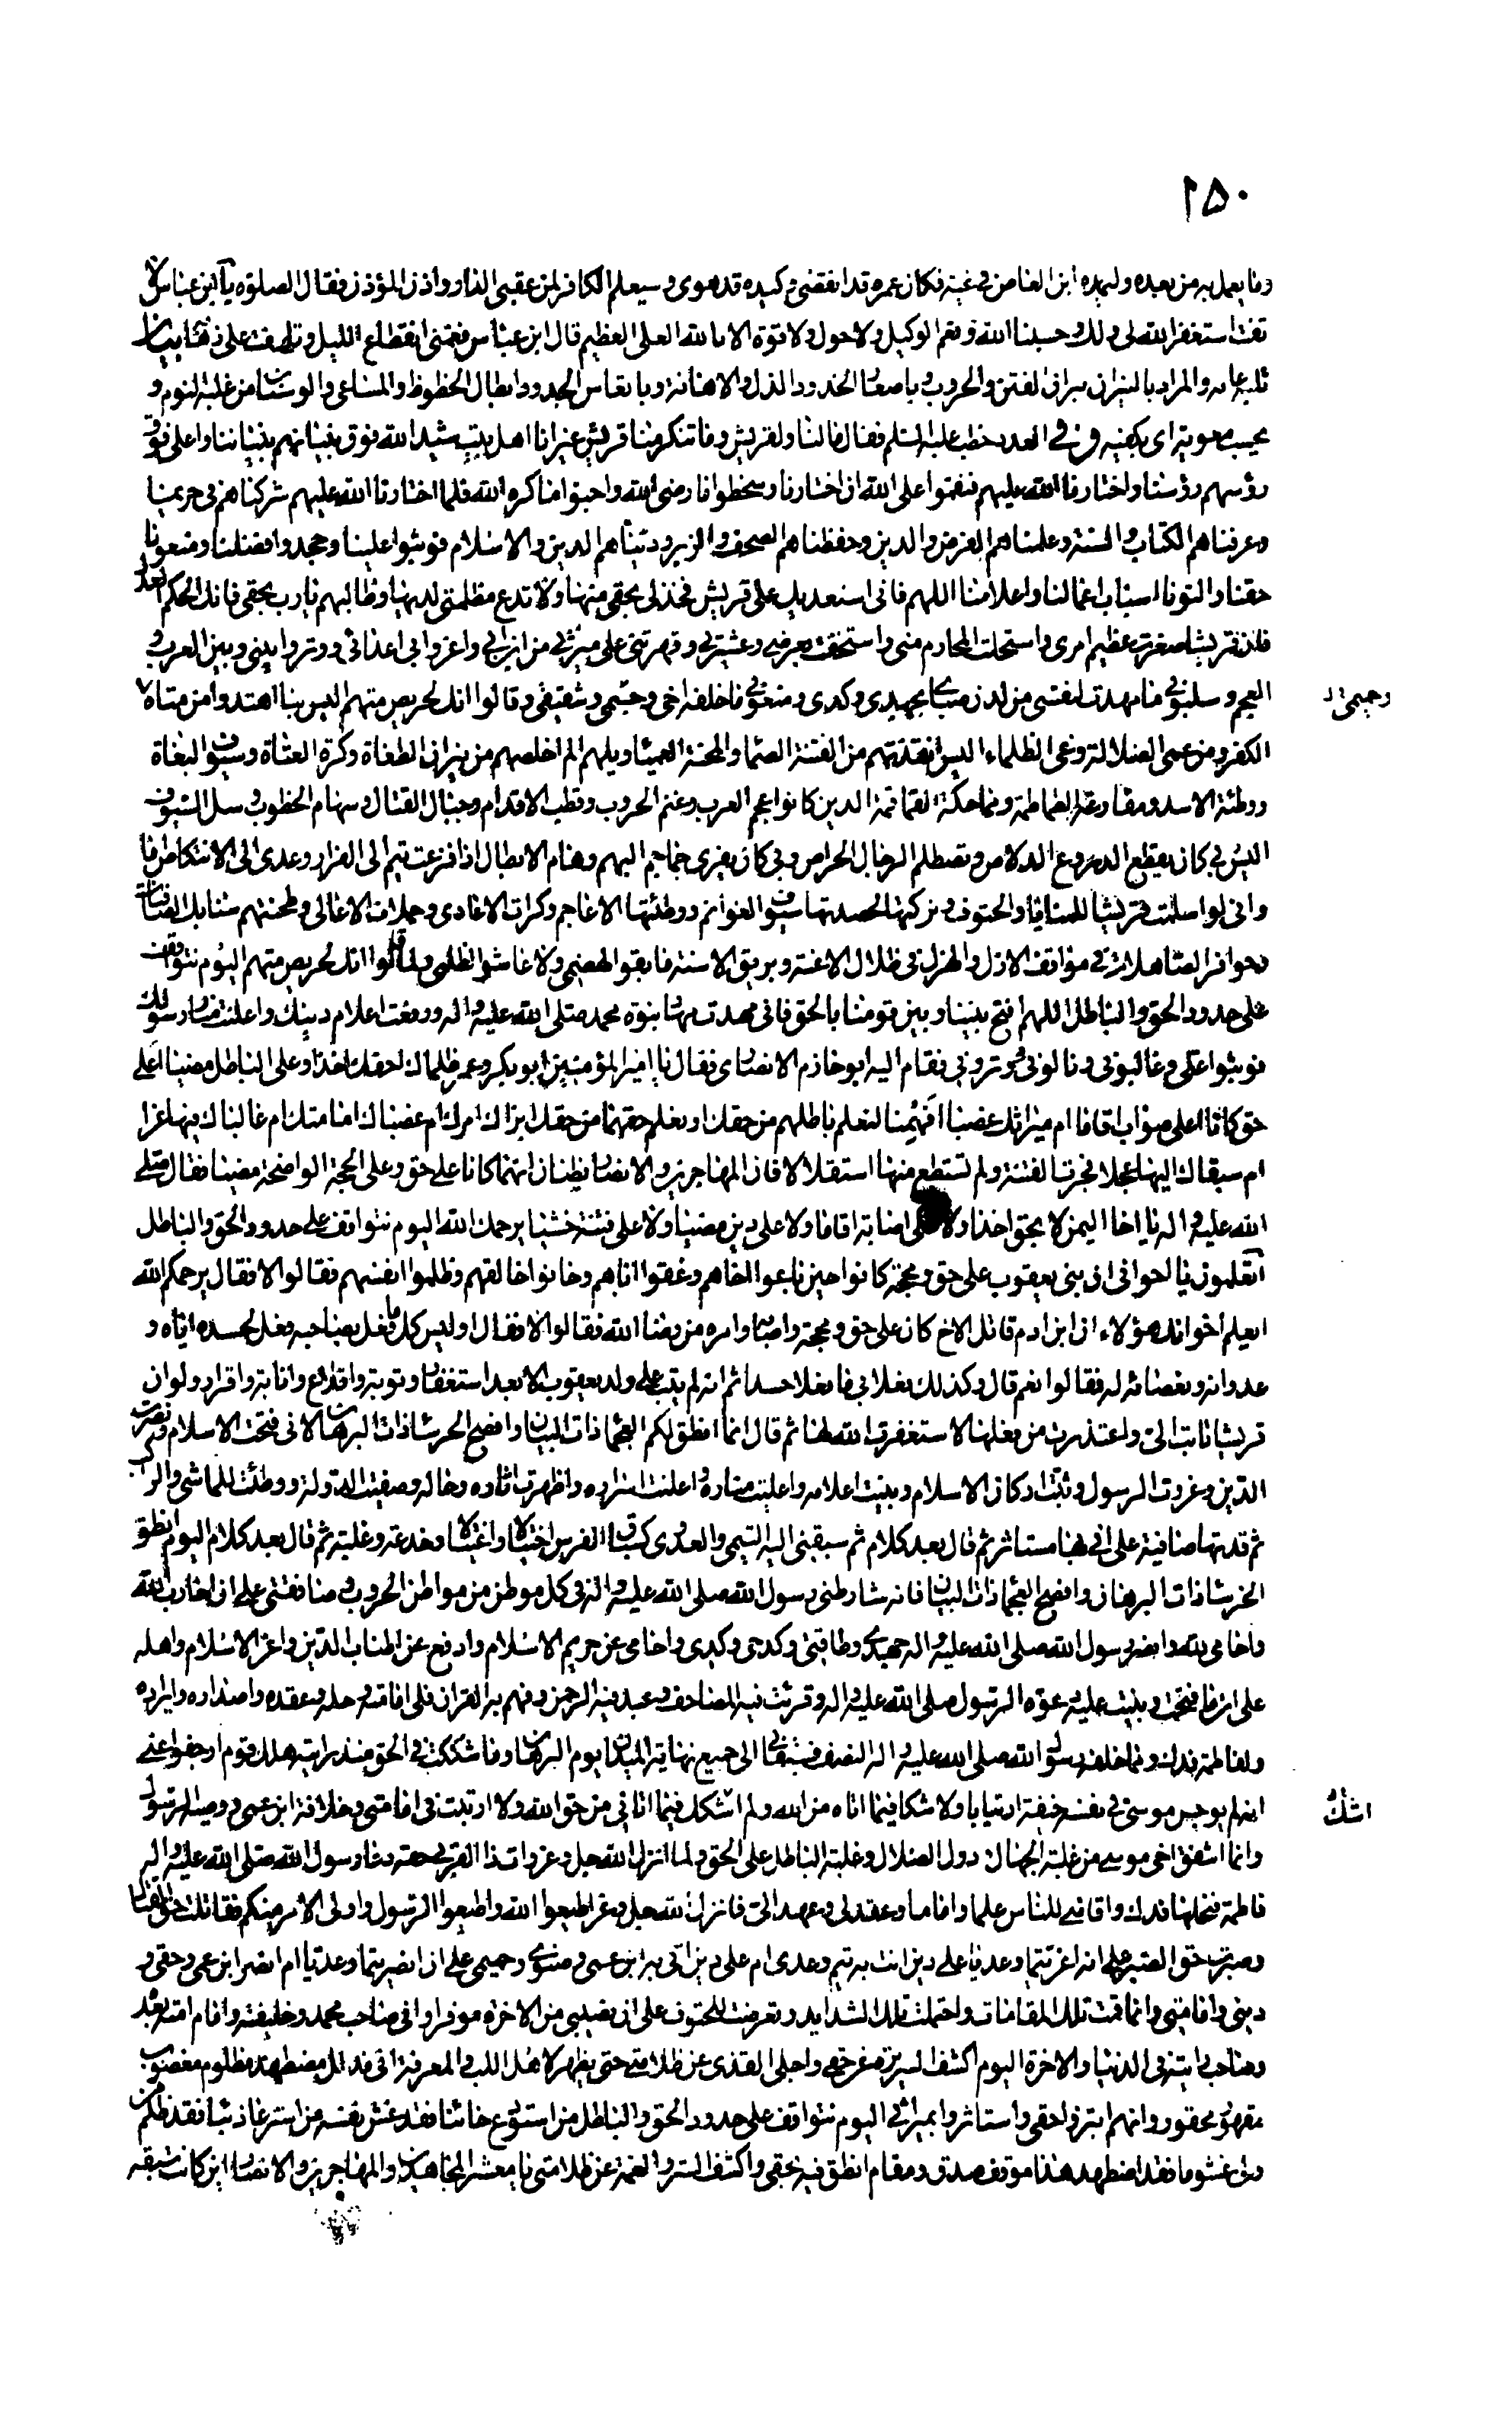 ٢٥٠
وما يعمل به من بعده وليهده ابن العاص في غيه فكان عمره قد انقضى وكيده قد هوى وسيعلم الكافر لمن عقبى الدار واذن المؤذن فقال الصلوة يا ابن عباس لا
تفت استغفر الله لى ولك وحسبنا الله ونعم الوكيل ولا حول ولا قوة الا بالله العلى العظيم قال ابن عباس فغمنى انقطاع الليل وتلهفت على ذهابه بيان
والمراد بالنيران نيران الفتن والحروب الخدود الذل والاهانة الجدود ابطال الحظوظ والمساعى والوسنان من غلبة النوم و
بحسب معوية اى يكفيه في العدد خطب عليه السلم فقال مالنا ولقريش وما تنكر منا قريش غير انا اهل بيت شيد الله فوق بنيانهم بنياننا واعلى فوق
رؤسهم رؤسنا واختارنا الله عليهم فنقموا على الله ان اختارنا وسخطوا ما رضى الله واحبوا ما كره الله فلما اختارنا الله عليهم شركناهم في حريمنا
وعرفناهم الكتاب والسنة وعلمناهم الفرض والدين وحفظناهم الصحف والزبر وديناهم الدين والاسلام فوثبوا علينا وجحدوا فضلنا ومنعونا
حقنا والتونا اسباب اعمالنا واعلامنا اللهم فانى استعديك على قريش فخذ لى بحقى منها ولا تدع مظلمتى لديها وطالبهم يا رب بحقى فانك الحكم العدل
فان قريشا صغرت عظيم امرى واستحلت المحارم منى واستخفت بعرضى وعشيرتى وقهرتنى على ميراثى من ابن عمى واغروا بى اعدائى ووتروا بينى وبين العرب و
العجم وسلبونى ما مهدت لنفسى من لدن صباى بجهدى وكدى ومنعونى ما خلفه اخى وجسمى وشقيقى وقالوا انك لحريص متهم اليس بنا اهتدوا من متاه
وحميمى ﺩ
الكفر ومن عمى الضلالة وغى الظلماء اليس انقذتهم من الفتنة الصماء والمحنة العمياء ويلهم الم اخلصهم من نيران الطغاة وكرة العتاة وسيوف البغاة
ووطئة الاسد ومقارعة الطماطمة ومماحكة القماقمة الذين كانوا عجم العرب وغنم الحروب وقطب الاقدام وجبال القتال وسهام الخطوب وسل السيوف
اليس بى كان يقطع الدروع الدلاص وتصطلم الرجال الحراص وبى كان يفرى جماجم البهم وهام الابطال اذا فزعت تيم الى الفرار وعدى الى الانتكاص اما
وانى لو اسلمت قريشا للمنايا والحتوف وتركتها لحصدتها سيوف الغوانم ووطئتها الاعاجم وكرات الاعادى وحملات الاعالى وطحنتهم سنابك الصافنات
وحوافر الصاهلات في مواقف الازل والهزل في ظلال الاعنة وبريق الاسنة ما بقوا لهضمى ولا عاشوا لظلمى ولما قالوا انك لحريص متهم اليوم نتواقف
على حدود الحق والباطل اللهم افتح بيننا وبين قومنا بالحق فانى مهدت مهاد نبوة محمد صلى الله عليه واله ورفعت اعلام دينك واعلنت منار رسولك
فوثبوا على وغالبونى ونالونى ووترونى فقام اليه ابو حازم الانصارى فقال يا امير المؤمنين ابو بكر وعمر ظلماك احقك اخذا وعلى الباطل مضيا اعلى
حق كانا اعلى صواب اقاما ام ميراثك غصبا افهمنا لنعلم باطلهم من حقك او نعلم حقهما من حقك ابزاك امرك ام غصباك امامتك ام غالباك فيها عزا
ام سبقاك اليها عجلا فجرت الفتنة ولم تستطع منها استقلالا فان المهاجرين والانصار يظنان انهما كانا على حق وعلى الحجة الواضحة مضيا فقال صلى
الله عليه واله يا اخا اليمن لا بحق اخذا ولا على اصابة اقاما ولا على دين مضيا ولا على فتنة خشيا يرحمك الله اليوم نتواقف على حدود الحق والباطل
اتعلمون يا اخوانى ان بنى يعقوب على حق ومحجة كانوا حين باعوا اخاهم وعقوا اباهم وخانوا خالقهم وظلموا انفسهم فقالوا لا فقال يرحمكم الله
ايعلم اخوانك هؤلاء ان ابن ادم قاتل الاخ كان على حق ومحجة واصاب وامره من رضا الله فقالوا لا فقال اوليس كل فعل بصاحبه ما فعل لحسده اياه و
عدوانه وبغضائه له فقالوا نعم قال وكذلك فعلا بى ما فعلا حسدا ثم انه لم يتب على ولد يعقوب الا بعد استغفار وتوبة واقلاع وانابة واقرار ولو ان
قريشا تابت الى واعتذرت من فعلها لاستغفرت الله لها ثم قال انما انطق لكم العجماء ذات البيان وافصح الخرساء ذات البرهان لانى فتحت الاسلام ونصرت
الدين وعززت الرسول وثبت اركان الاسلام وبنيت اعلامه واعليت مناره واعلنت اسراره واظهرت اثاره وحاله وصفيت الدولة ووطئت للماشى والراكب
ثم قدتها صافية على انى بها مستاثر ثم قال بعد كلام ثم سبقنى اليه التيمى والعدوى كسباق الفرس احتيالا واغتيالا وخدعة وغلبة ثم قال بعد كلام اليوم انطق
الخرساء ذات البرهان وافصح العجماء ذات البيان فانه شارطنى رسول الله صلى الله عليه واله في كل موطن من مواطن الحروب وصافقنى على ان احارب لله
واحامى لله وانصر رسول الله صلى الله عليه واله جهدى وطاقتى وكدحى وكدى واحامى عن حريم الاسلام وادفع عن اطناب الدين واعز الاسلام واهله
على ان ما فتحت وبنيت عليه دعوة الرسول صلى الله عليه واله وقرئت فيه المصاحف وعبد فيه الرحمن وفهم به القران فلى امامته وحله وعقده واصداره وايراده
ولفاطمة فدك ومما خلفه رسول الله صلى الله عليه واله النصف فسبقانى الى جميع نهاية الميدان يوم الرهان وما شككت في الحق منذ رايته هلك قوم ارجفوا عنى
انه لم يوجس موسى في نفسه خيفة ارتيابا ولا شكا فيما اتاه من الله ولم اشكك فيما اتانى من حق الله ولا ارتبت في امامتى وخلافة ابن عمى ووصية الرسول
اشكّ
وانما اشفق اخى موسى من غلبة الجهال ودول الضلال وغلبة الباطل على الحق ولما انزل الله جل وعز وات ذا القربى حقه دعا رسول الله صلى الله عليه واله
فاطمة فنحلها فدك واقامنى للناس علما واماما وعقد لى وعهد الى فانزل الله جل وعز اطيعوا الله واطيعوا الرسول واولى الامر منكم فقاتلت حق القتال
وصبرت حق الصبر على انه اعز تيما وعديا على دين اتت به تيم وعدى ام على دين اتى به ابن عمى وصنوى وجسمى على ان انصر تيما وعديا ام انصر ابن عمى وحقى و
دينى وامامتى وانما قمت تلك المقامات واحتملت تلك الشدايد وتعرضت للحتوف على ان نصيبى من الاخرة موفرا وانى صاحب محمد وخليفته وامام امته بعده
وصاحب رايته في الدنيا والاخرة اليوم اكشف السريرة عن حقى واجلى القذى عن ظلامتى حتى يظهر لاهل اللب والمعرفة انى مذلل مضطهد مظلوم مغصوب
مقهور محقور وانهم ابتزوا حقى واستاثروا بميراثى اليوم نتواقف على حدود الحق والباطل من استودع خائنا فقد غش نفسه من استرعى ذئبا فقد ظلم من
ولى غشوما فقد اضطهد هذا موقف صدق ومقام انطق فيه بحقى واكشف الستر والغمة عن ظلامتى يا معشر المجاهدين والمهاجرين والانصار اين كانت سبقة